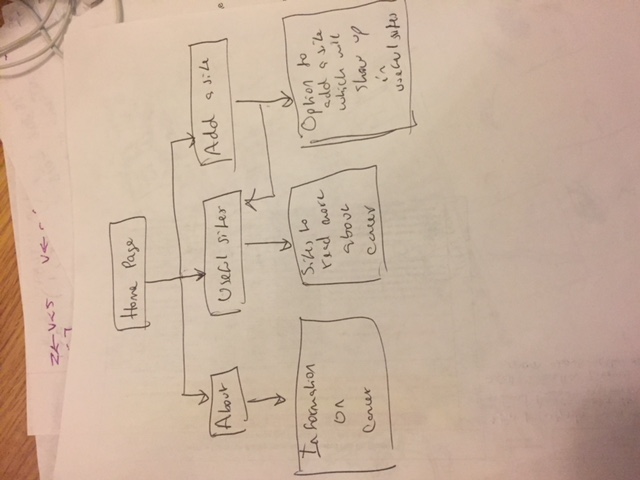 Home Page
About
Useful sites
Add a site
Information
on
Sites to
read more
about
Option to
add a site
which will
show up
in
useful sites